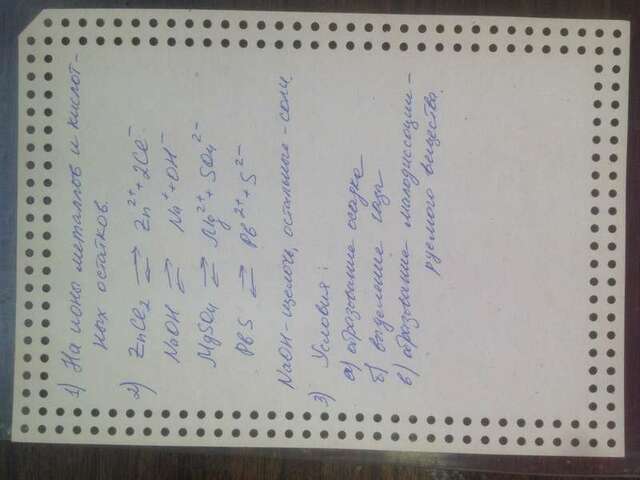 1) На ионы металлов и кислот-
ных остатков.
2) ZnCl₂ ⇌ Zn²⁺ + 2Cl⁻
NaOH ⇌ Na⁺ + OH⁻
MgSO₄ ⇌ Mg²⁺ + SO₄²⁻
PbS ⇌ Pb²⁺ + S²⁻
NaOH - щелочь, остальные - соли.
3) Условия:
а) образование осадка
б) выделение газа
в) образование малодиссации-
руемого вещества.